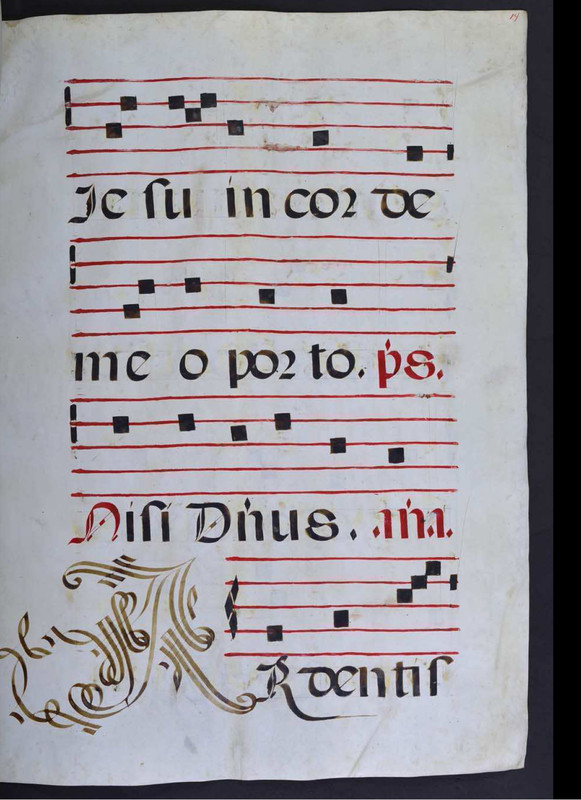 Je su in cor de
me o por to. ps.
Nisi Dñus.
ARdentis